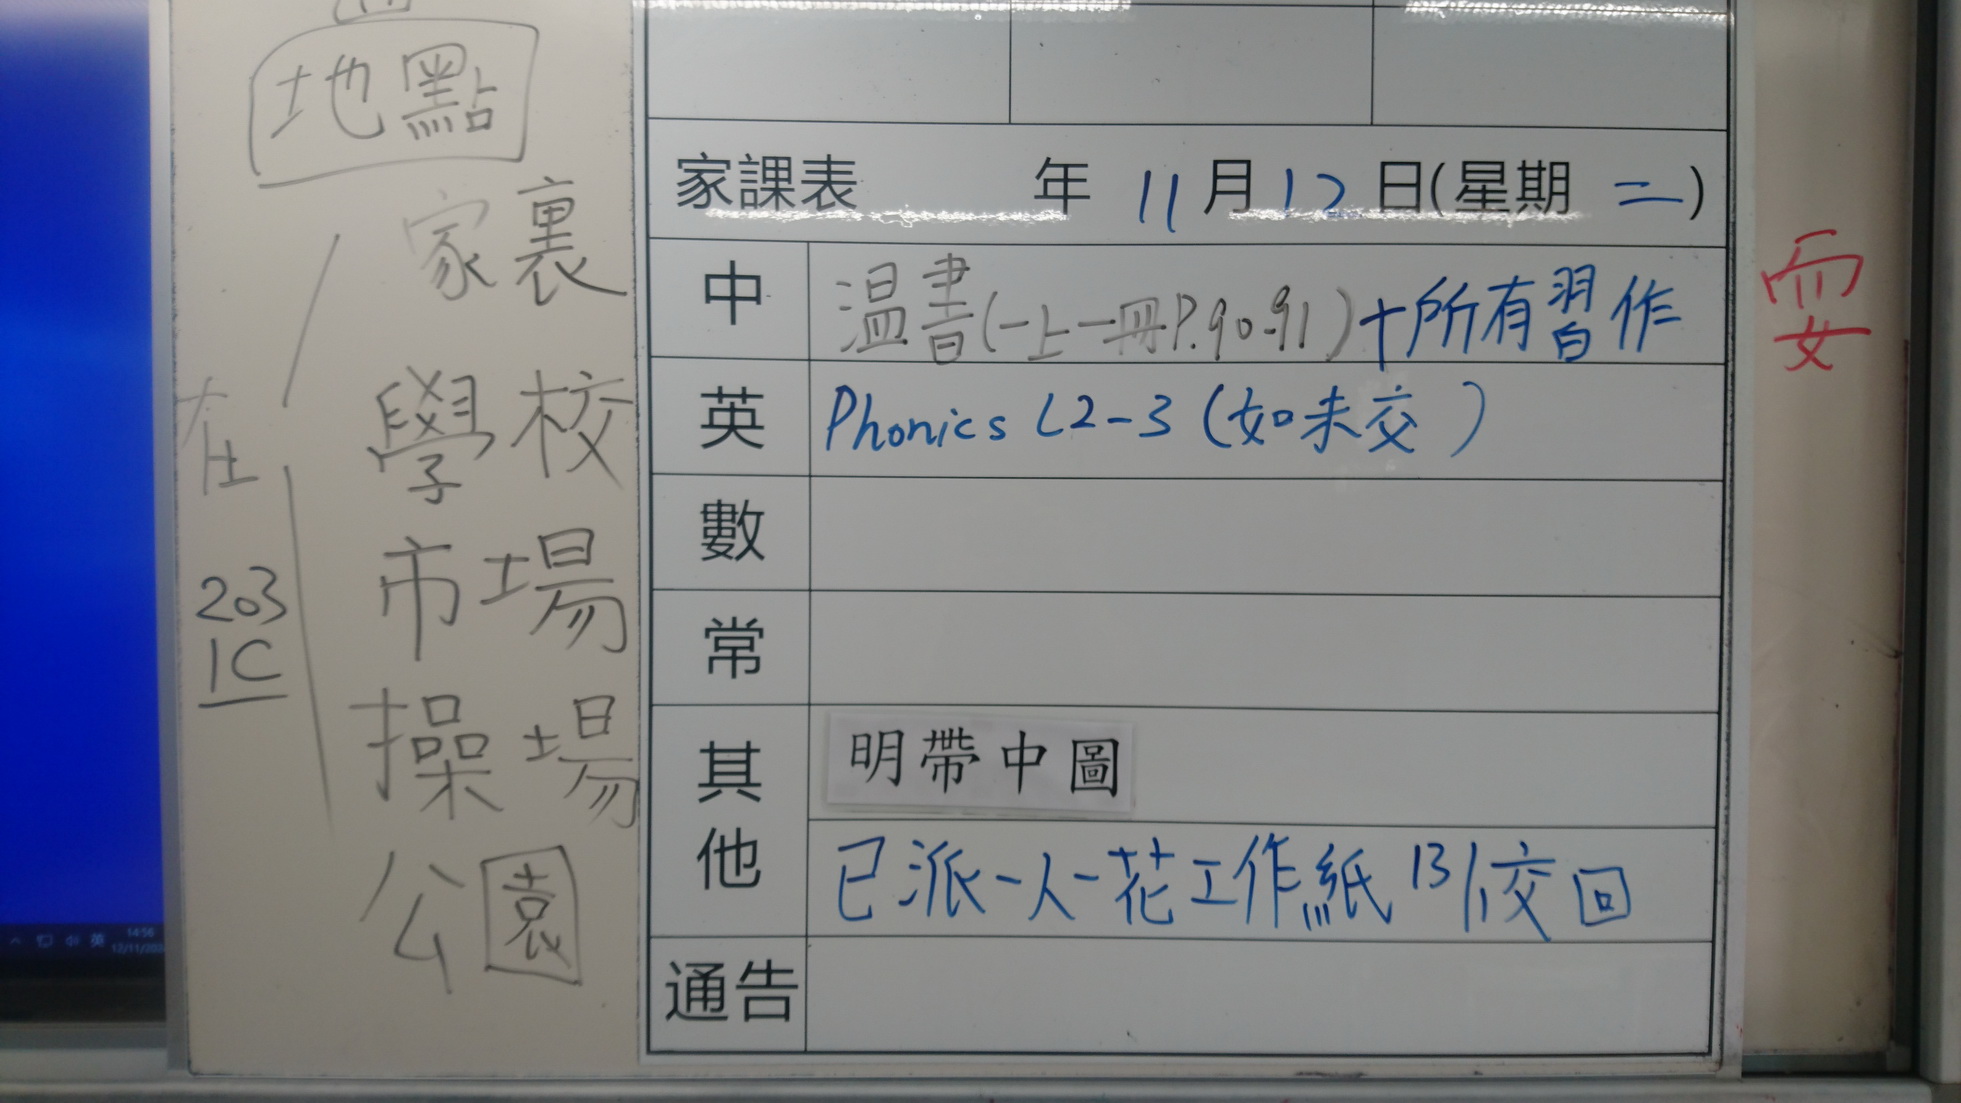 地點
家裏
學校
在
市場
203
1C
操場
公園
家課表 年 11月12日(星期二)
中 溫書(一上一冊P.90-91)+所有習作
英 Phonics L2-3 (如未交)
數
常
其他 明帶中圖
已派一人一花工作紙 13/11交回
通告
耍
14:56
英